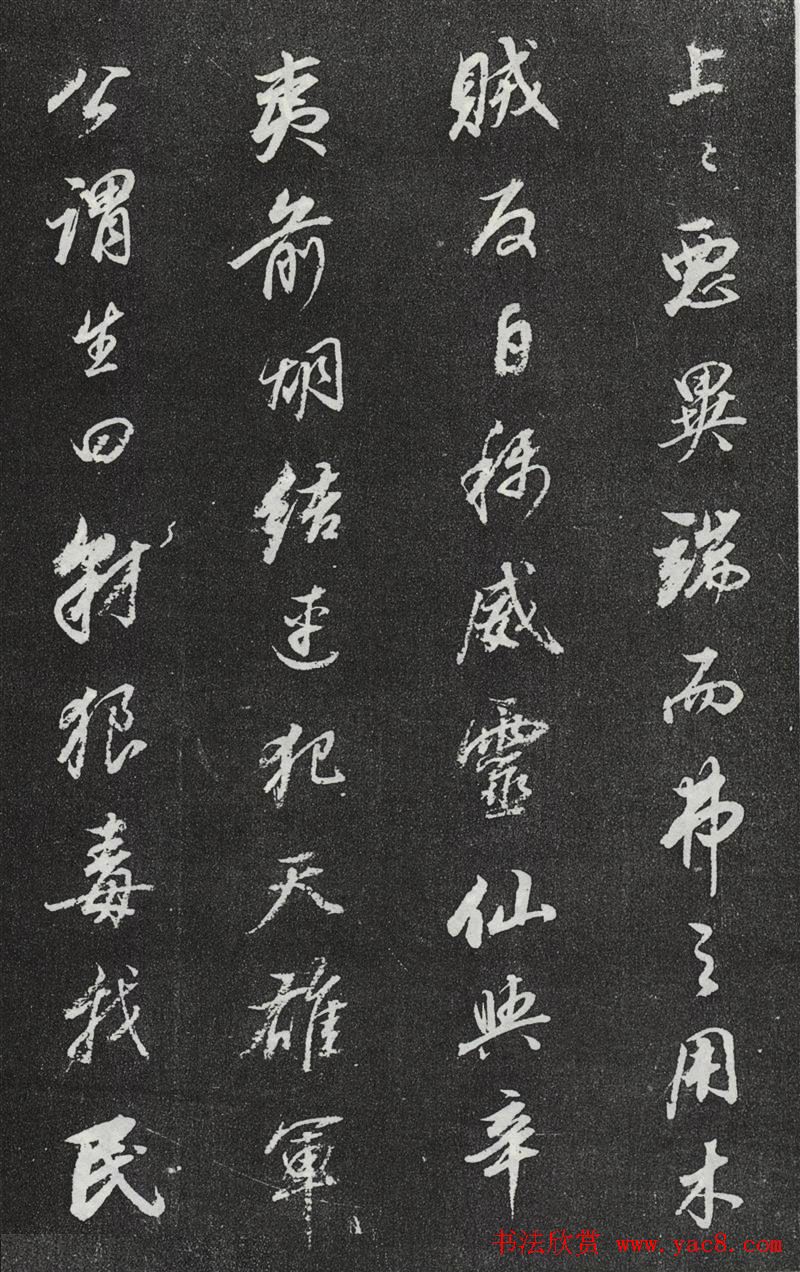 上〻惡異端而弗之用木
賊反自稱威靈仙與辛
夷前胡結連犯天雄軍
公謂生曰豺狼毒我民
书法欣赏 www.yac8.com